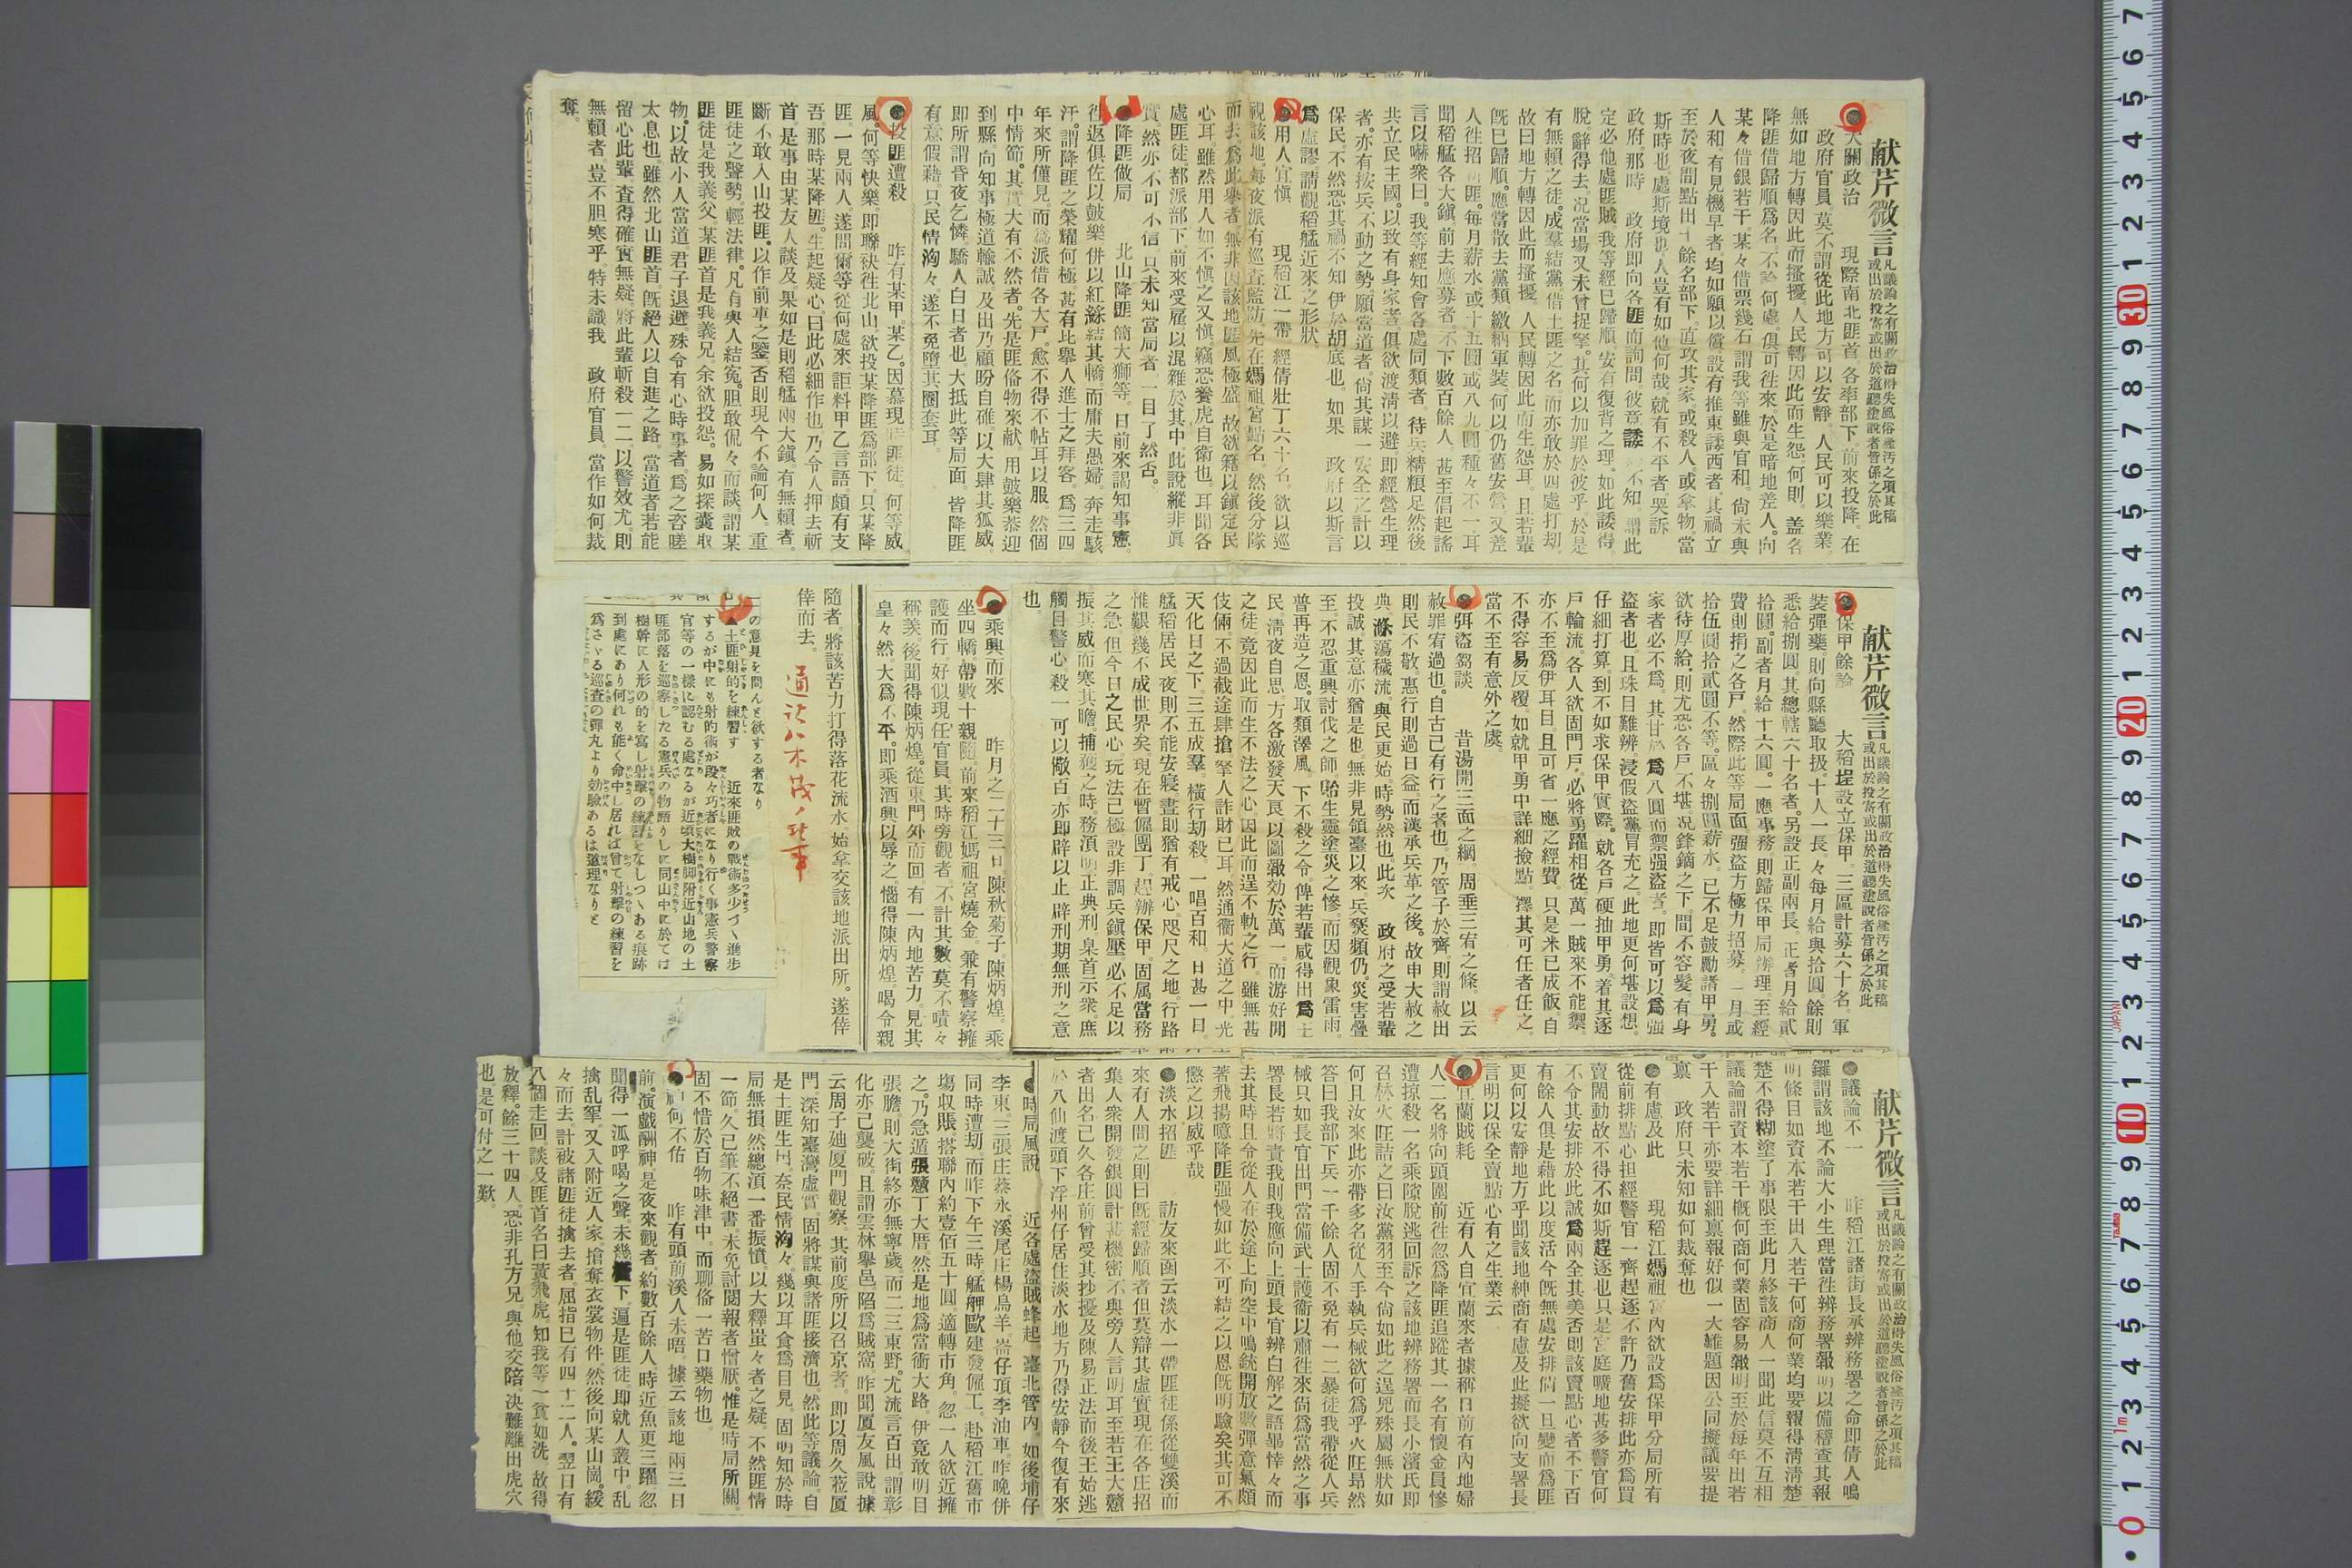 献芹微言
凡議論之有關政治得失風俗隆汚之項其稿
或出於投寄或出於道聽塗說者皆係之於此
●大關政治　現際南北匪首。各率部下。前來投降。在
政府官員。莫不謂從此地方可以安靜。人民可以樂業。
無如地方轉因此而搔擾。人民轉因此而生怨。何則。盖各
降匪借歸順爲名。不論何處。俱可徃來。於是暗地差人。向
某々借銀若干。某々借票幾石。謂我等雖與官和。尙未與
人和。有見機早者。均如願以償。設有推東諉西者。其禍立
至。於夜間點出十餘名部下。直攻其家。或殺人。或拿物。當
斯時也。處斯境也。人豈有如他何哉。就有不平者。哭訴
政府。那時　政府即向各匪而詢問。彼竟諉　不知。謂此
定必他處匪賊。我等經已歸順。安有復背之理。如此諉得
脫。辭得去。况當塲又未曾捉拏。其何以加罪於彼乎。於是
有無賴之徒。成羣結黨。借土匪之名。而亦敢於四處打刧。
故曰地方轉因此而搔擾。人民轉因此而生怨耳。且若輩
旣已歸順。應當散去黨類。繳納軍裝。何以仍舊安營。又差
人徃招　匪。每月薪水。或十五圓。或八九圓。種々不一。耳
聞稻艋各大鎮。前去應募者。不下數百餘人。甚至倡起謠
言以嚇衆曰。我等經知會各處同類者。待兵精糧足然後
共立民主國。以致有身家者。俱欲渡淸以避。即經營生理
者。亦有按兵不動之勢。願當道者。尙其謀一安全之計以
保民。不然恐其禍不知伊於胡底也。如果　政府以斯言
爲虛謬。請觀稻艋近來之形狀。
●用人宜愼　現稻江一帶。經倩壯丁六十名。欲以巡
視該地。每夜派有巡查監防。先在媽祖宮點名。然後分隊
而去。爲此擧者。無非因該地匪風極盛。故欲籍以鎭定民
心耳。雖然用人如不愼之又愼。竊恐養虎自衛也。耳聞各
處匪徒。都派部下。前來受雇。以混雜於其中。此說縱非眞
實。然亦不可不信。只未知當局者。一目了然否。
●降匪做局　北山降匪簡大獅等。日前來謁知事憲。
徃返俱佐以鼓樂。併以紅綵結其轎。而庸夫愚婦。奔走駭
汗。謂降匪之榮耀何極。甚有比擧人進士之拜客。爲三四
年來所僅見。而爲派借各大戶。愈不得不帖耳以服。然個
中情節。其實大有不然者。先是匪俻物來献。用鼓樂恭迎
到縣。向知事極道輸誠。及出乃顧盼自雄。以大肆其狐威。
即所謂昏夜乞憐。驕人白日者也。大抵此等局面。皆降匪
有意假藉。只民情洶々。遂不免墮其圈套耳。
●投匪遭殺　昨有某甲。某乙。因慕現時匪徒。何等威
風。何等快樂。即聯袂徃北山。欲投某降匪爲部下。只某降
匪。一見兩人。遂問爾等從何處來。詎料甲乙言語。頗有支
吾。那時某降匪。生起疑心。曰此必細作也。乃令人押去斬
首。是事由某友人談及。果如是。則稻艋兩大鎭。有無賴者。
斷不敢入山投匪。以作前車之鑒。否則現今不論何人。重
匪徒之聲勢。輕法律。凡有與人結寃。胆敢侃々而談。謂某
匪徒是我義父。某匪首是我義兄。余欲投怨。易如探囊取
物。以故小人當道。君子退避。殊令有心時事者。爲之咨嗟
太息也。雖然北山匪首。旣絕人以自進之路。當道者若能
留心此輩。査得確實無疑。將此輩斬殺一二。以警效尤。則
無賴者。豈不胆寒乎。特未識我　政府官員。當作如何裁
奪。
献芹微言
凡議論之有關政治得失風俗隆汚之項其稿
或出於投寄或出於道聽塗說者皆係之於此
●保甲餘論　大稻埕設立保甲。三區計募六十名。軍
裝彈藥。則向縣聽取扱。十人一長。々每月給與拾圓。餘則
悉給捌圓。其總轄六十名者。另設正副兩長。正者月給貳
拾圓。副者月給十六圓。一應事務。則歸保甲局辦理。至經
費則捐之各戶。然際此等局面。强盜方極力招募。一月或
拾伍圓拾貳圓不等。區々捌圓薪水。已不足鼓勵諸甲勇。
欲待厚給。則尤恐各戶不堪。况鋒鏑之下。間不容髮。有身
家者必不爲。其甘於爲八圓而禦强盜者。即皆可以爲强
盜者也。且珠目難辨。浸假盜黨冒充之。此地更何堪設想。
仔細打算。到不如求保甲實際。就各戶硬抽甲勇。着其逐
戶輪流。各人欲固門戶。必將勇躍相從。萬一賊來不能禦。
亦不至爲伊耳目。且可省一應之經費。只是米已成飯。自
不得容易反覆。如就甲勇中詳細撿點。擇其可任者任之。
當不至有意外之虞。
●弭盜芻談　昔湯開三面之綱。周垂三宥之條。以云
赦罪宥過也。自古已有行之者也。乃管子於齊。則謂赦出
則民不敬。惠行則過日益。而漢承兵革之後。故申大赦之
典。滌蕩穢流。與民更始。時勢然也。此次　政府之受若輩
投誠。其意亦猶是也。無非見領臺以來。兵燹頻仍。災害疊
至。不忍重興討伐之師。貽生靈塗炭之慘。而因觀象雷雨。
普再造之恩。取類澤風。下不殺之令。俾若輩咸得出爲王
民。淸夜自思。方各激發天良。以圖報効於萬一。而游好閒
之徒。竟因此而生不法之心。因此而逞不軌之行。雖無甚
伎倆。不過截途肆搶。拏人詐財已耳。然通衢大道之中。光
天化日之下。三五成羣。橫行刧殺。一唱百和。日甚一日。
艋稻居民。夜則不能安寢。晝則猶有戒心。咫尺之地。行路
惟艱。幾不成世界矣。現在暫僱團丁。趕辦保甲。固属當務
之急。但今日之民心。玩法已極。設非調兵鎮壓。必不足以
振其威而寒其膽。捕獲之時。務須明正典刑。梟首示衆。庶
觸目警心。殺一可以儆百。亦即辟以止辟。刑期無刑之意
也。
●乘興而來　昨月之二十三日。陳秋菊子。陳炳煌。乘
坐四轎。帶數十親隨。前來稻江媽祖宮燒金。兼有警察擁
護而行。好似現任官員。其時旁觀者。不計其數。莫不嘖々
稱羨。後聞得陳炳煌。從東門外而回。有一內地苦力。見其
皇々然。大爲不平。即乘酒興以辱之。惱得陳炳煌。喝令親
隨者。將該苦力打得落花流水。始拿交該地派出所。遂倖
倖而去。
の意見を問んと欲する者なり
▲土匪射的を練習す　近來匪賊の戰術多少づゝ進步
するが中にも射的術が段々巧者になり行く事憲兵警察
官等の一樣に認むる處なるが近頃大樹脚附近山地の土
匪部落を巡察したる憲兵の物語りしに同山中に於ては
樹幹に人形の的を寫し射擊の練習をなしつゝある痕跡
到處にあり何れも能く命中し居れば曾て射擊の練習を
爲さゞる巡査の彈丸より効驗あるは道理なりと
献芹微言
凡議論之有關政治得失風俗隆汚之項其稿
或出於投寄或出於道聽塗說者皆係之於此
●議論不一　昨稻江諸街長承辨務署之命即倩人鳴
鑼謂該地不論大小生理當徃辨務署報明以備稽查其報
明條目如資本若干出入若干何商何業均要報得淸淸楚
楚不得糊塗了事限至此月終該商人一聞此信莫不互相
議論謂資本若干槪何商何業固容易報明至於每年出若
干入若干亦要詳細禀報好似一大難題因公同擬議要提
禀　政府只未知如何裁奪也
●有慮及此　現稻江媽祖宮內欲設爲保甲分局所有
從前排點心担經警官一齊趕逐不許乃舊安排此亦爲買
賣閙動故不得不如斯趕逐也只是宮庭曠地甚多警官何
不令其安排於此誠爲兩全其美否則該賣點心者不下百
有餘人俱是藉此以度活今旣無處安排倘一旦變而爲匪
更何以安靜地方乎聞該地紳商有慮及此擬欲向支署長
言明以保全賣點心有之生業云
●宜蘭賊耗　近有人自宜蘭來者據稱日前有內地婦
人二名將向頭圍前徃忽爲降匪追蹤其一名有懷金員慘
遭掠殺一名乘隙脫逃回訴之該地辨務署而長小濱氏即
召林火旺詰之曰汝黨羽至今尙如此之逞兇殊屬無狀如
何且汝來此亦帶多名從人手執兵械欲何爲乎火旺昂然
答曰我部下兵一千餘人固不免有一二暴徒我帶從人兵
械只如長官出門當備武士護衛以肅徃來尙爲當然之事
署長若將責我則我應向上頭長官辨白解之語畢悻々而
去其時且令從人在於途上向空中鳴銃開放數彈意氣頗
著飛揚噫降匪强慢如此不可結之以恩旣明驗矣其可不
懲之以威乎哉
●淡水招匪　訪友來函云淡水一帶匪徒係從雙溪而
來有人問之則曰旣經歸順者但莫辯其虛實現在各庄招
集人衆開發銀圓計甚機密不與旁人言明耳至若王大戇
者出名已久各庄前曾受其抄擾及陳易正法而後王始逃
於八仙渡頭下浮州仔居住淡水地方乃得安靜今復有來
●時局風說　近各處盜賊蜂起。臺北管內。如後埔仔
李東。三張庄蔡永。溪尾庄楊烏羊。崙仔頂李油車。昨晚併
同時遭刧。而昨下午三時。艋舺歐建發僱工。赴稻江舊市
塲收賬。搭聯內約壹佰五十圓。適轉市角。忽一人欲近擁
之。乃急遁張戇丁大厝。然是地爲當衝大路。伊竟敢明目
張膽。則大街終亦無寧歲。而二三東野。尤流言百出。謂彰
化亦已襲破。且謂雲林擧邑陷爲賊窩。昨聞厦友風說。據
云周子廸厦門觀察。其前度所以召京者。即以周久蒞厦
門。深知臺灣虛實。固將謀與諸匪接濟也。然此等議論。自
是土匪生日。奈民情洶々。幾以耳食爲目見。固明知於時
局無損。然總須一番振憤。以大釋蚩々者之疑。不然匪情
一節。久已筆不絕書。未免討閱報者憎厭。惟是時局所關。
固不惜於百物味津中。而聊俻一苦口藥物也。
●神何不佑　昨有頭前溪人未晤。據云該地兩三日
前。演戲酬神。是夜來觀者。約數百餘人。時近魚更三躍。忽
聞得一派呼喝之聲。未幾　下。遍是匪徒。即就人叢中。亂
擒亂拏。又入附近人家。搶奪衣裳物件。然後向某山崗。緩
々而去。計被諸匪徒擒去者。屈指已有四十二人。翌日有
八個走回。談及匪首名曰黃飛虎。知我等一貧如洗。故得
放釋。餘三十四人。恐非孔方兄。與他交陪。決難離出虎穴
也。是可付之一歎。